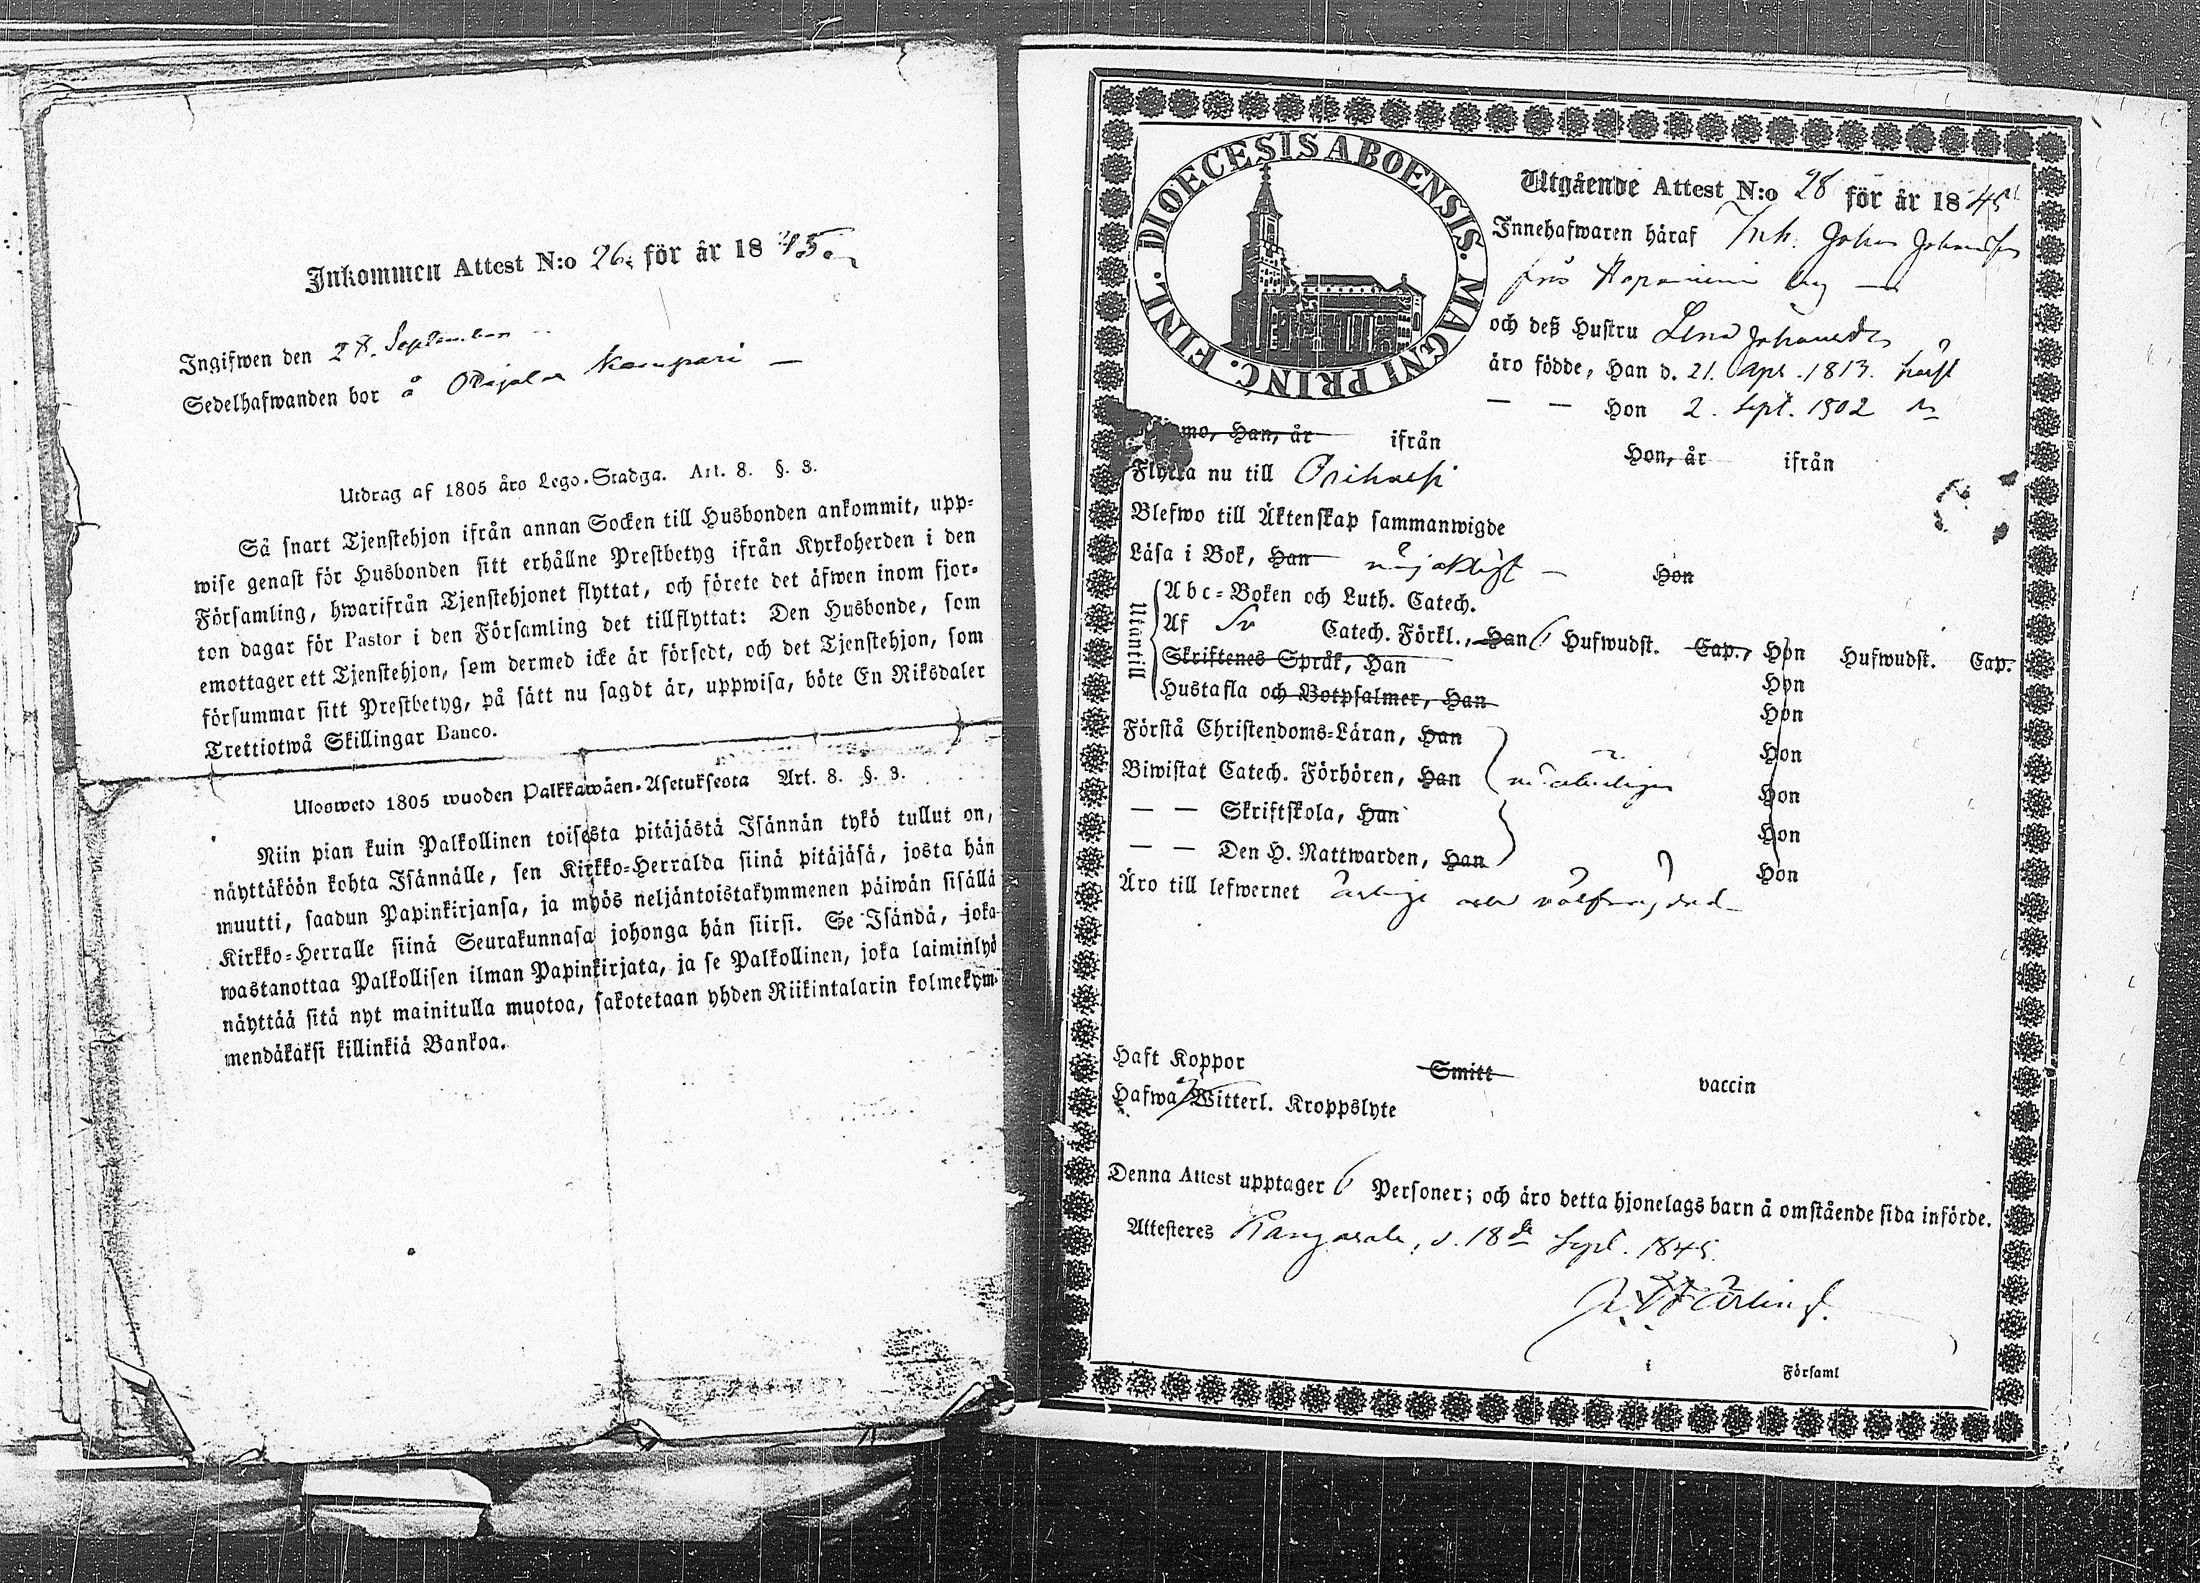 Inkommen Attest N:o 26. för år 1845.
Ingifwen den 28. September
Sedelhafwanden bor å Kampari —
Utdrag af 1805 åro Lego-Stadga. Art. 8. §. 3.
Så snart Tjenstehjon ifrån annan Socken till Husbonden ankommit, upp-
wise genast för Husbonden sitt erhållne Prestbetyg ifrån Kyrkoherden i den
Församling, hwarifrån Tjenstehjonet flyttat, och förete det äfwen inom fjor-
ton dagar för Pastor i den Församling det tillflyttat: Den Husbonde, som
emottager ett Tjenstehjon, som dermed icke är försedt, och det Tjenstehjon, som
försummar sitt Prestbetyg, på sätt nu sagdt är, uppwisa, böte En Riksdaler
Trettiotwå Skillingar Banco.
Ulosweto 1805 wuoden Palkkawäen-Asetuksesta Art. 8. §. 3.
Niin pian kuin Palkollinen toisesta pitäjästä Isännän tykö tullut on,
näyttäköön kohta Isännälle, sen Kirkko-Herralda siinä pitäjäsä, josta hän
muutti, saadun Papinkirjansa, ja myös neljäntoistakymmenen päiwän sisällä
Kirkko-Herralle siinä Seurakunnasa johonga hän siirsi. Se Isändä, joka
wastanottaa Palkollisen ilman Papinkirjata, ja se Palkollinen, joka laiminlyö
näyttää sitä nyt mainitulla muotoa, sakotetaan yhden Riikintalarin kolmekym-
mendäkaksi killinkiä Bankoa.
DIOECESIS ABOENSIS. MAGNI PRINC. FINL.
Utgående Attest N:o 28 för år 1845
Innehafwaren häraf Inh. Johan Johansson
från
och deß Hustru Lena Johansdr
äro födde, Han d. 21. Apr. 1813. härst
— — Hon 2. Sept. 1802 do
Han, år ifrån Hon, år ifrån
Flytta nu till Orihvesi
Blefwo till Äktenskap sammanwigde
Läsa i Bok, Han nöjaktigt — Hon
Utantill
Abc-Boken och Luth. Catech.
Af Sv Catech. Förkl., Han 6 Hufwudst. Cap., Hon Hufwudst. Cap.
Skriftenes Språk, Han Hon
Hustafla och Botpsalmer, Han Hon
Förstå Christendoms-Läran, Han Hon
Biwistat Catech. Förhören, Han Hon
— — Skriftskola, Han Hon
— — Den H. Nattwarden, Han Hon
Äro till lefwernet ärlige och välfrägdad
Haft Koppor Smitt vaccin
Hafwa Witterl. Kroppslyte
Denna Attest upptager 6 Personer; och äro detta hjonelags barn å omstående sida införde.
Attesteres Kangasala, d. 18de Sept. 1845.
i Församl